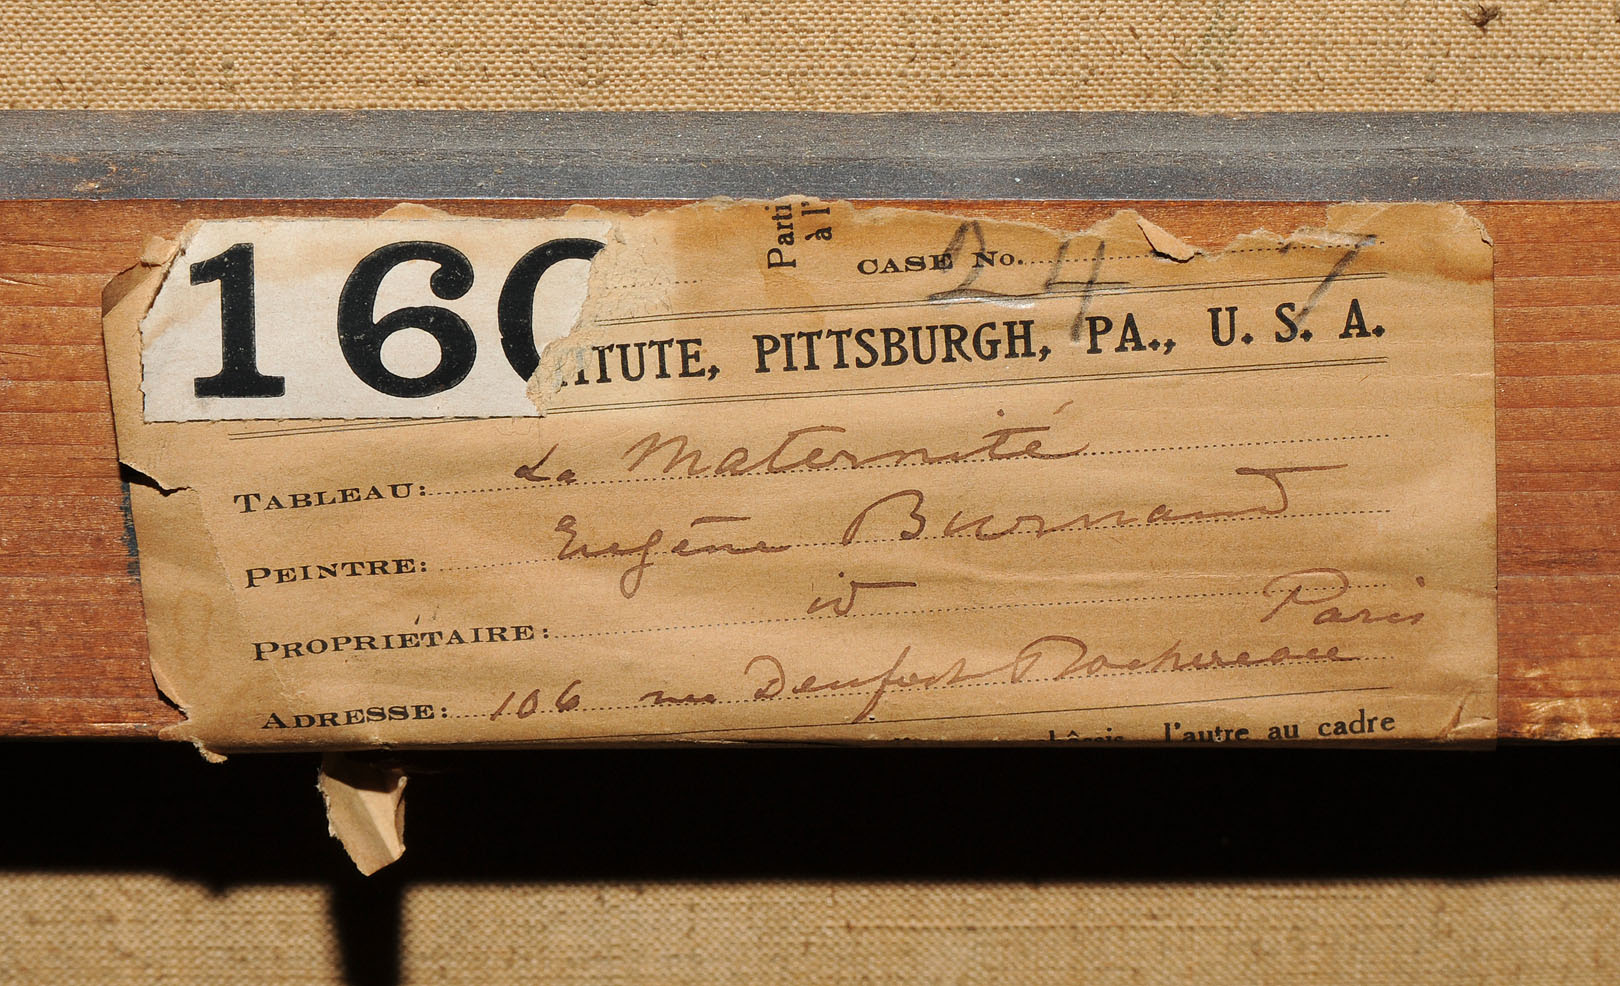 160
Parti
à l'
CASE No. 24 7
TITUTE, PITTSBURGH, PA., U. S. A.
TABLEAU: La Maternité
PEINTRE: Eugène Burnand
PROPRIÉTAIRE: id
Paris
ADRESSE: 106 rue Denfert Rochereau
châssis, l'autre au cadre